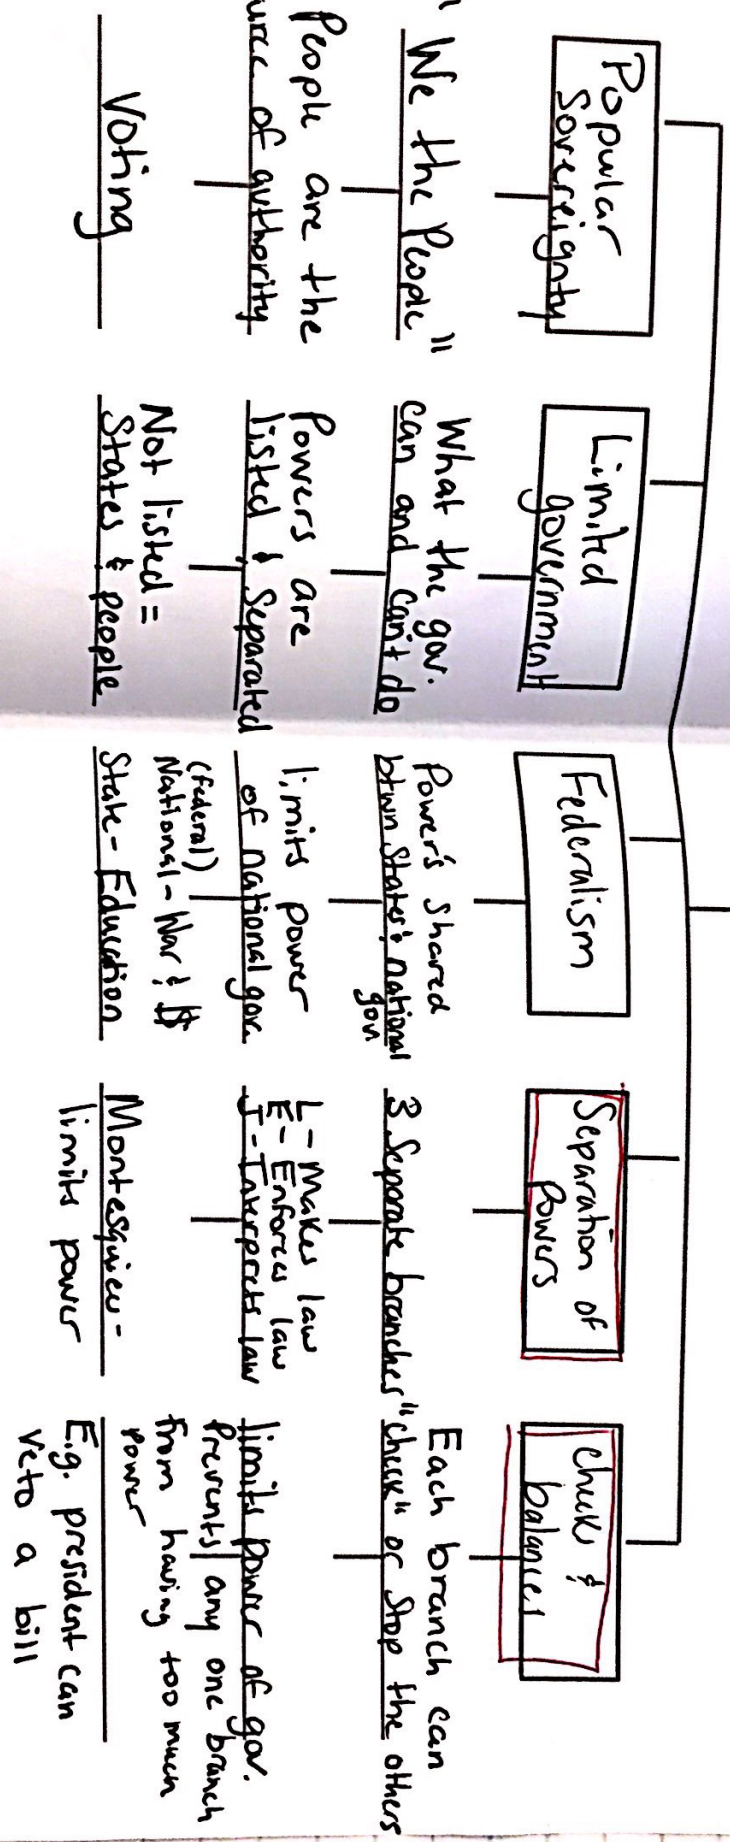 Popular
Sovereignty
"We the People"
People are the
of authority
Voting
Limited
government
What the gov.
can and can't do
Powers are
listed & Separated
Not listed =
States & people
Federalism
Power's shared
btwn States & national
gov.
limits power
of national gov.
(federal)
National - War & $
State - Education
Separation of
Powers
3 Separate branches
L - Makes law
E - Enforces law
J - Interprets law
Montesquieu -
limits power
checks &
balances
Each branch can
"check" or Stop the others
limits power of gov.
Prevents any one branch
from having too much
power
E.g. president can
veto a bill